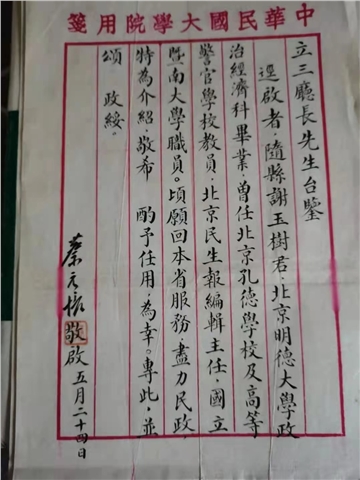 中華民國大學院用箋
立三廳長先生台鑒
逕啟者．隨縣謝玉樹君．北京明德大學政
治經濟科畢業．曾任北京孔德學校及高等
警官學校教員．北京民生報編輯主任．國立
暨南大學職員。頃願回本省服務．盡力民政．
特為介紹．敬希　酌予任用．為幸。專此．並
頌　政綏．
蔡元培敬啟五月二十四日